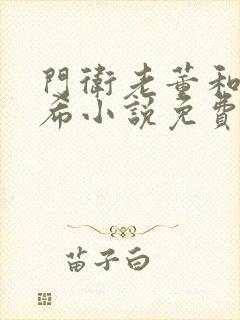 門衛老董和
希小說免費
苗子白